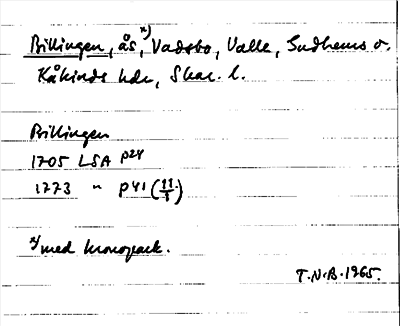 Billingen, ås,x) Vadsbo, Valle, Gudhems o.
Kåkinds hdr, Skar. l.
Billingen
1705 LSA p24
1773 " p41 (11/1)
x) med kronopark.
T.N.B. 1965.